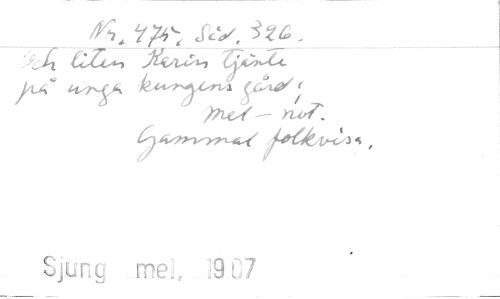 Nr. 475, Sid. 326.
Och liten Karin tjänte
på unga kungens gård;
mel-not.
Gammal folkvisa.
Sjung mel, 1907